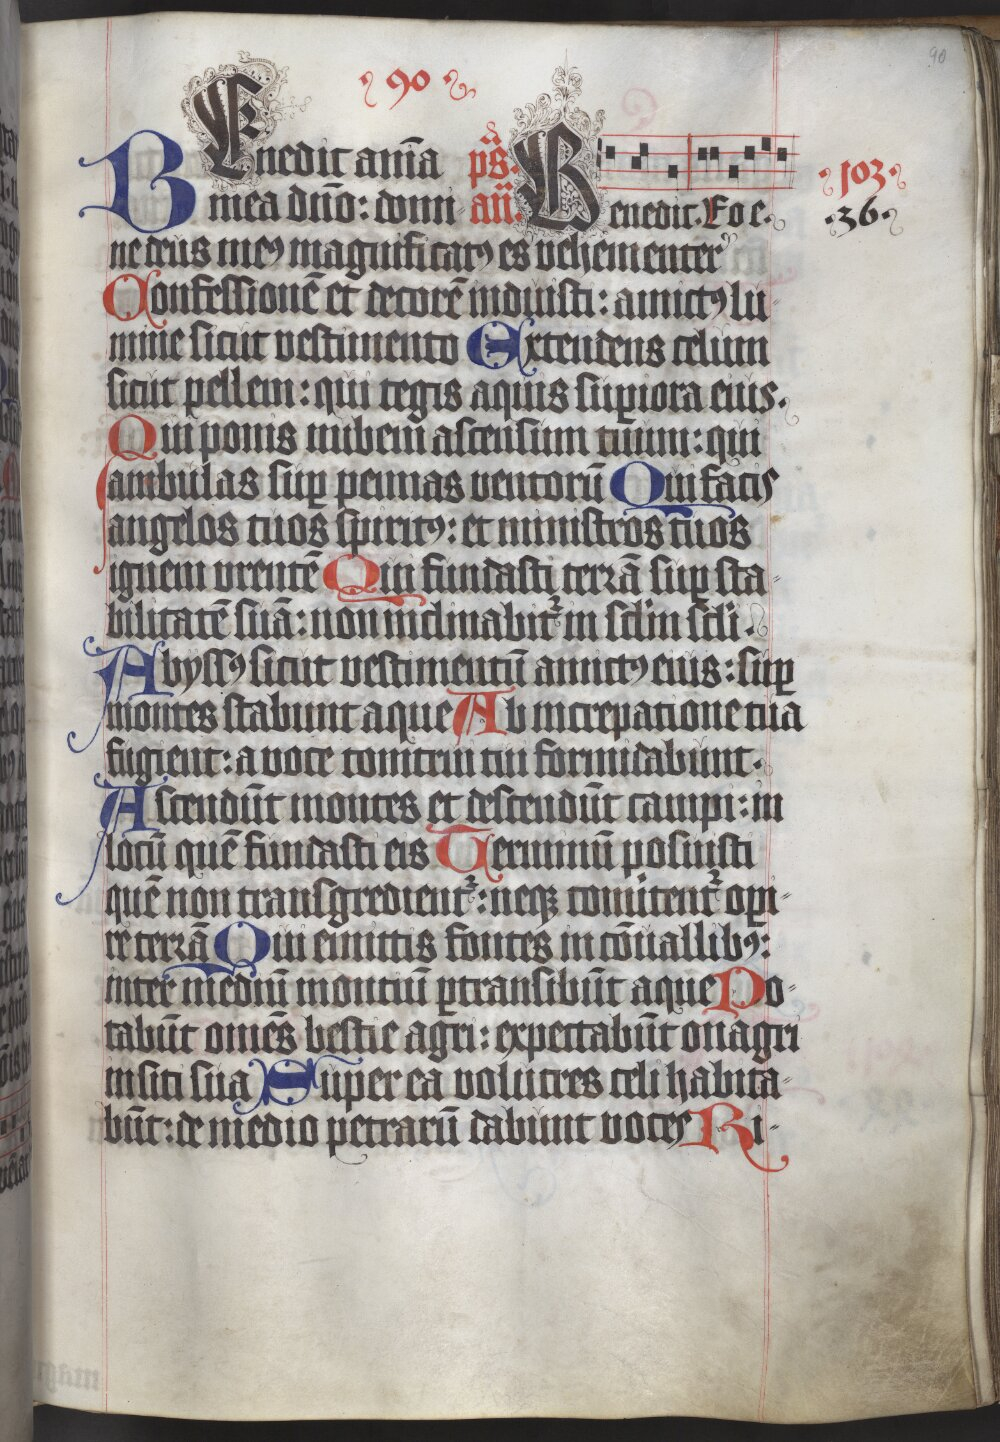 90
90
BEnedic aīa pš.
mea dn̄o: domi an̄. Benedic. Eoe.
103
36
ne deus meꝰ magnificatꝰ es vehementer
Confessionē et decorē induisti: amictꝰ lu
mine sicut vestimento Extendens celum
sicut pellem: qui tegis aquis sup̱iora eius.
Qui ponis nubem ascensum tuum: qui
ambulas sup̱ pennas ventorū Qui facis
angelos tuos spiritꝰ: et ministros tuos
ignem vrentē Qui fundasti terrā sup̱ sta
bilitatē suā: non inclinabit᷑ in sc̄lm sc̄li.
Abyssꝰ sicut vestimentū amictꝰ eius: sup̱
montes stabunt aque Ab increpatione tua
fugient: a voce tonitrui tui formidabunt.
Ascendūt montes et descendūt campi: in
locū quē fundasti eis Terminū posuisti
quē non transgredient᷑: neqꝫ conūtent᷑ op̱i
re terrā Qui emittis fontes in cōuallibꝰ:
inter mediū montiū p̱transibūt aque Po
tabūt om̄es bestie agri: expectabūt onagri
in siti sua Super ea volucres celi habita
būt: de medio petrarū dabunt voces Ri